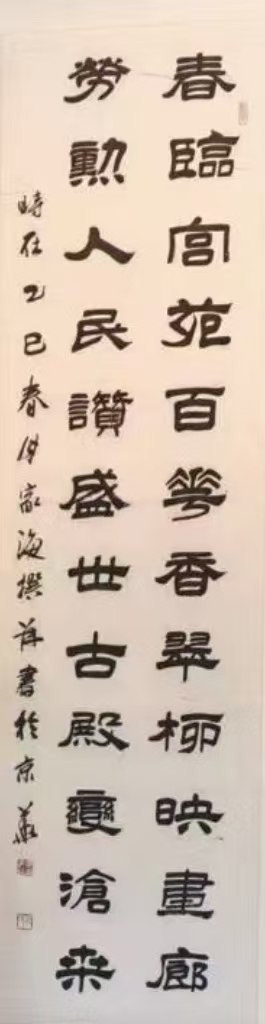 春臨宮苑百花香翠柳映畫廊
勞勳人民讚盛世古殿變滄桑
時在乙巳春月家海撰并書於京華